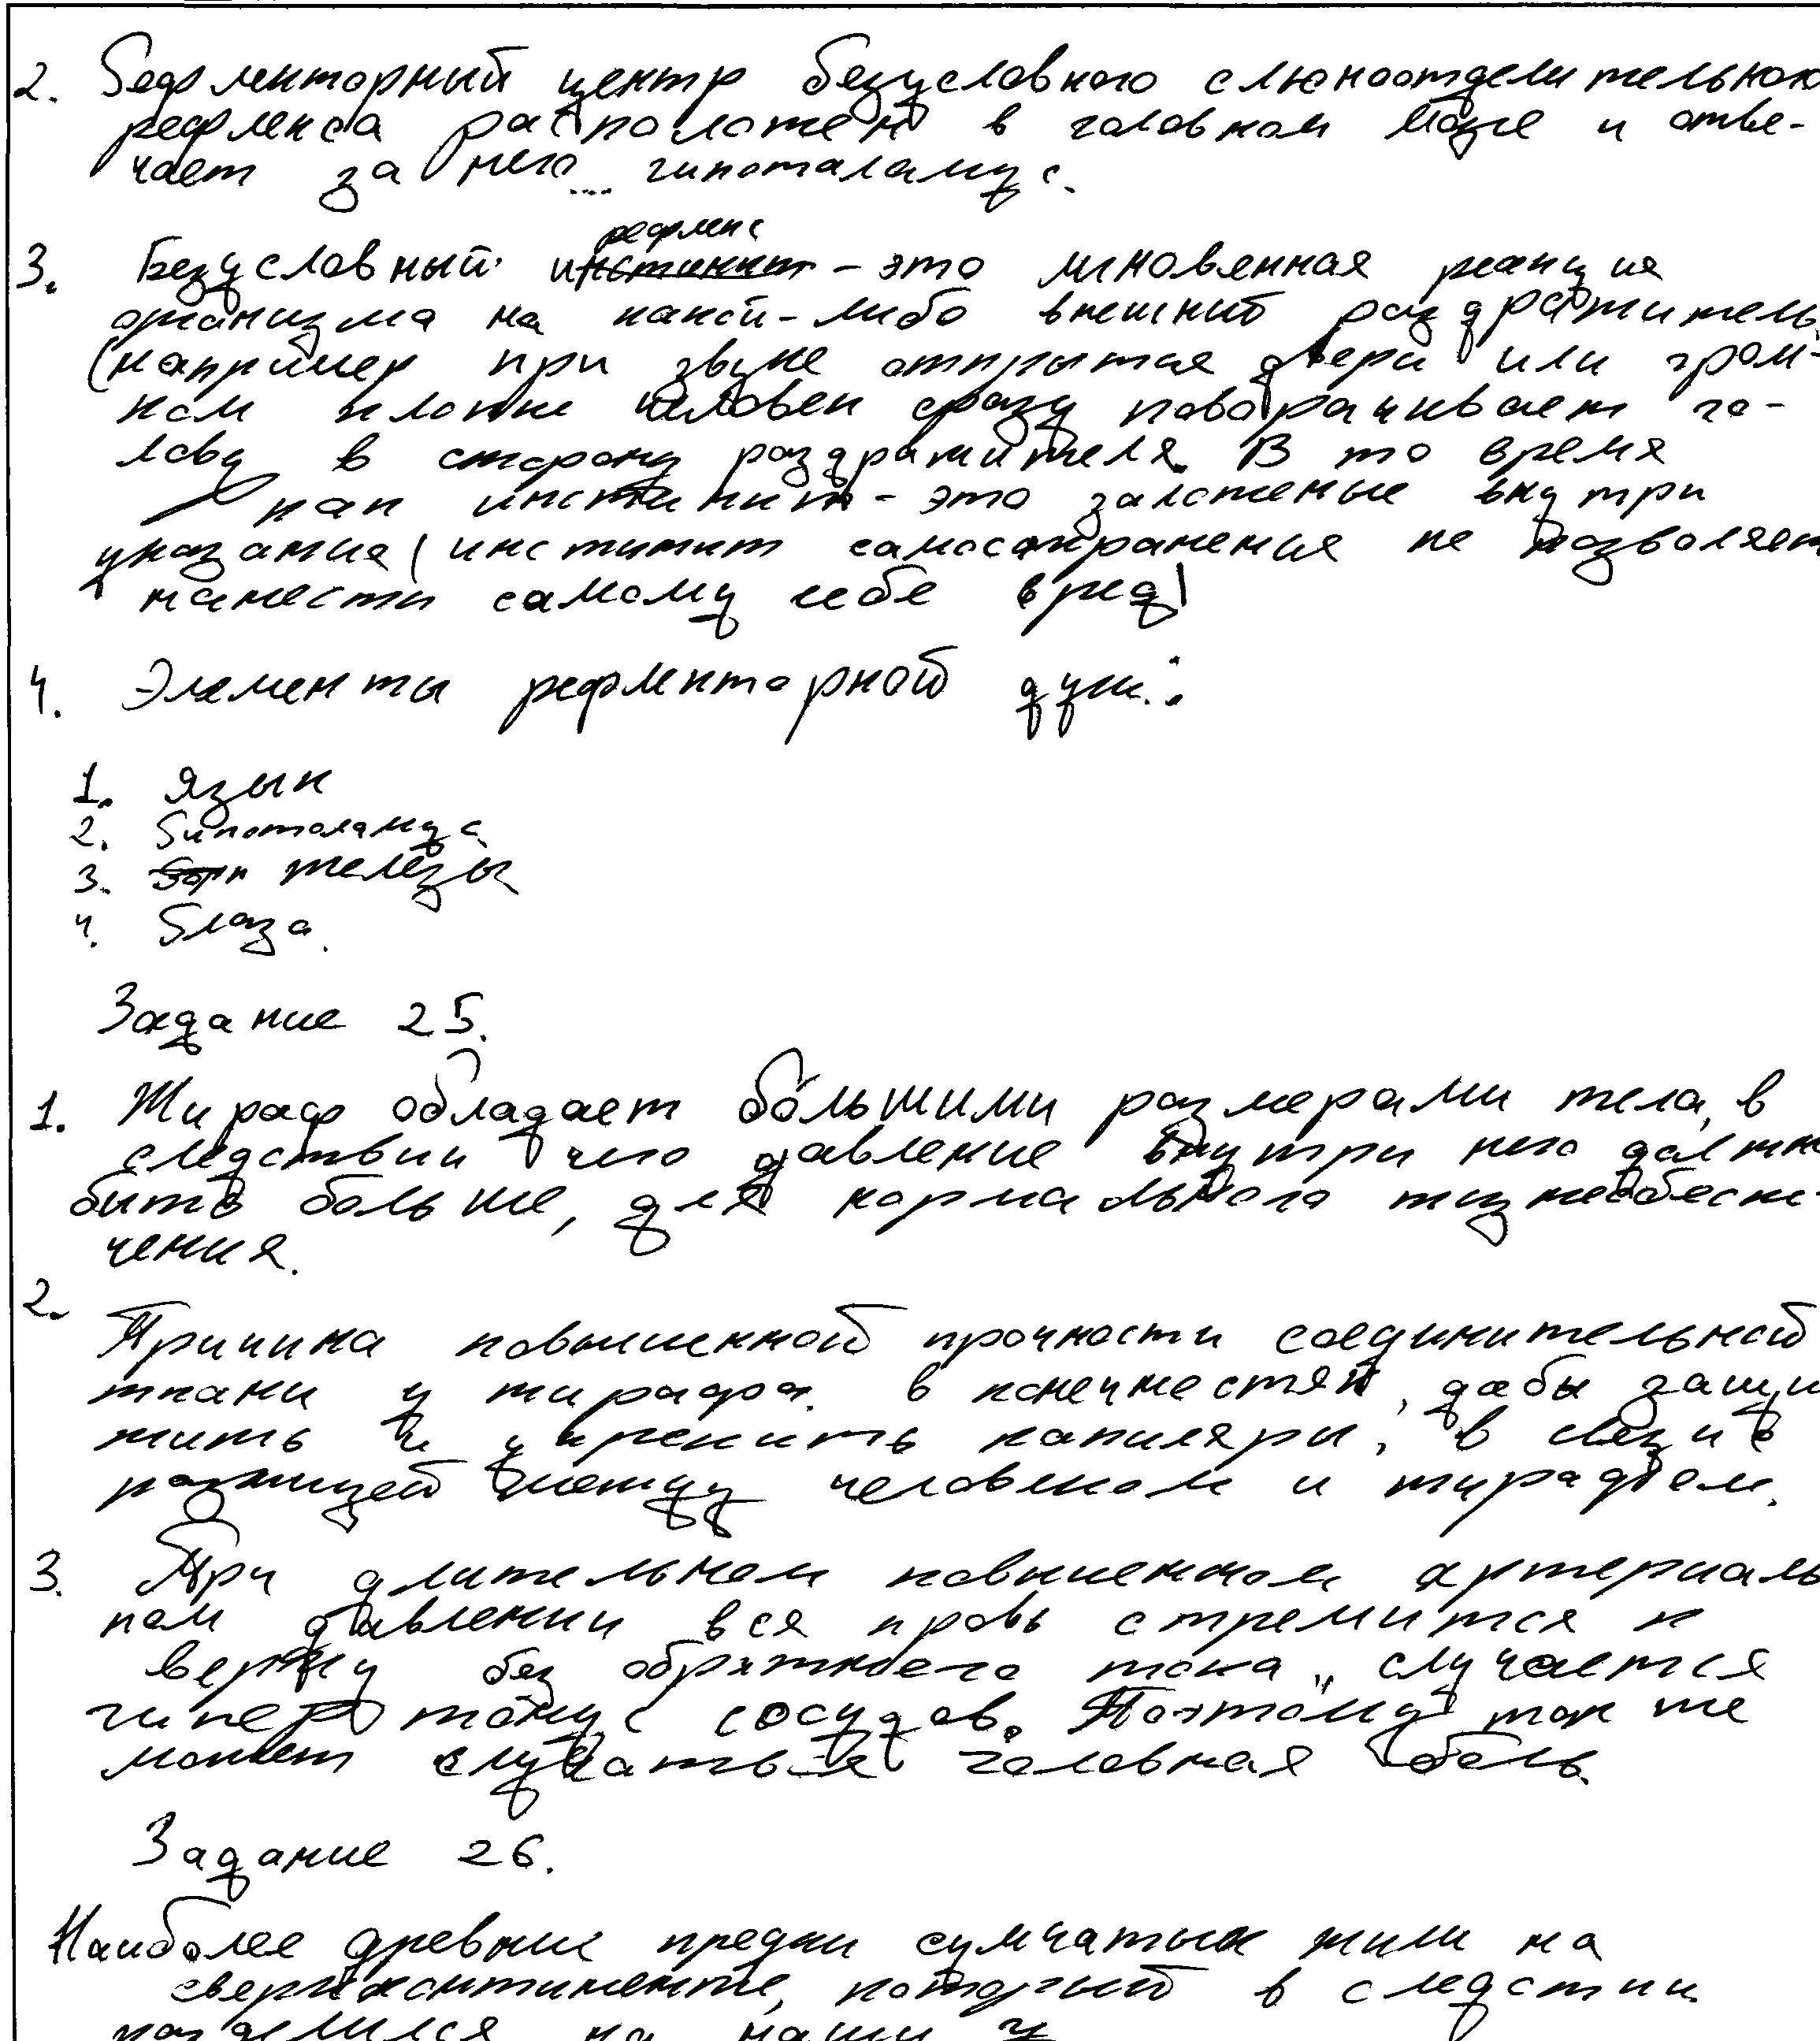 2. Рефлекторный центр безусловного слюноотделительного
рефлекса расположен в головном мозге и отве-
чает за него... гипоталамус.
3. Безусловный рефлекс - это мгновенная реакция
организма на какой-либо внешний раздражитель
(например при звуке открытия двери или гром-
ком хлопке человек сразу поворачивает го-
лову в сторону раздражителя. В то время
как инстинкт - это заложеные внутри
указания (инстинкт самосохранения не позволяет
нанести самому себе вред)
4. Элементы рефлекторной дуги:
1. Язык
2. Гипоталамус
3. железы
4. Глаза.
Задание 25.
1. Жираф обладает бо́льшими размерами тела, в
следствии чего давление внутри него должно
быть больше, для нормального жизнеобеспе-
чения.
2.
Причина повышенной прочности соединительной
ткани у жирафа в конечностях, дабы защи
тить и укрепить капиляры, в связи с
разницей между человеком и жирафом.
3. При длительном повышенном артериаль
ном давлении вся кровь стремится к
верху без обратного тока, случается
гипертонус сосудов. Поэтому так же
может случаться головная боль.
Задание 26.
Наиболее древние предки сумчатых жили на
сверхконтиненте, который в следстии
разделился на наши